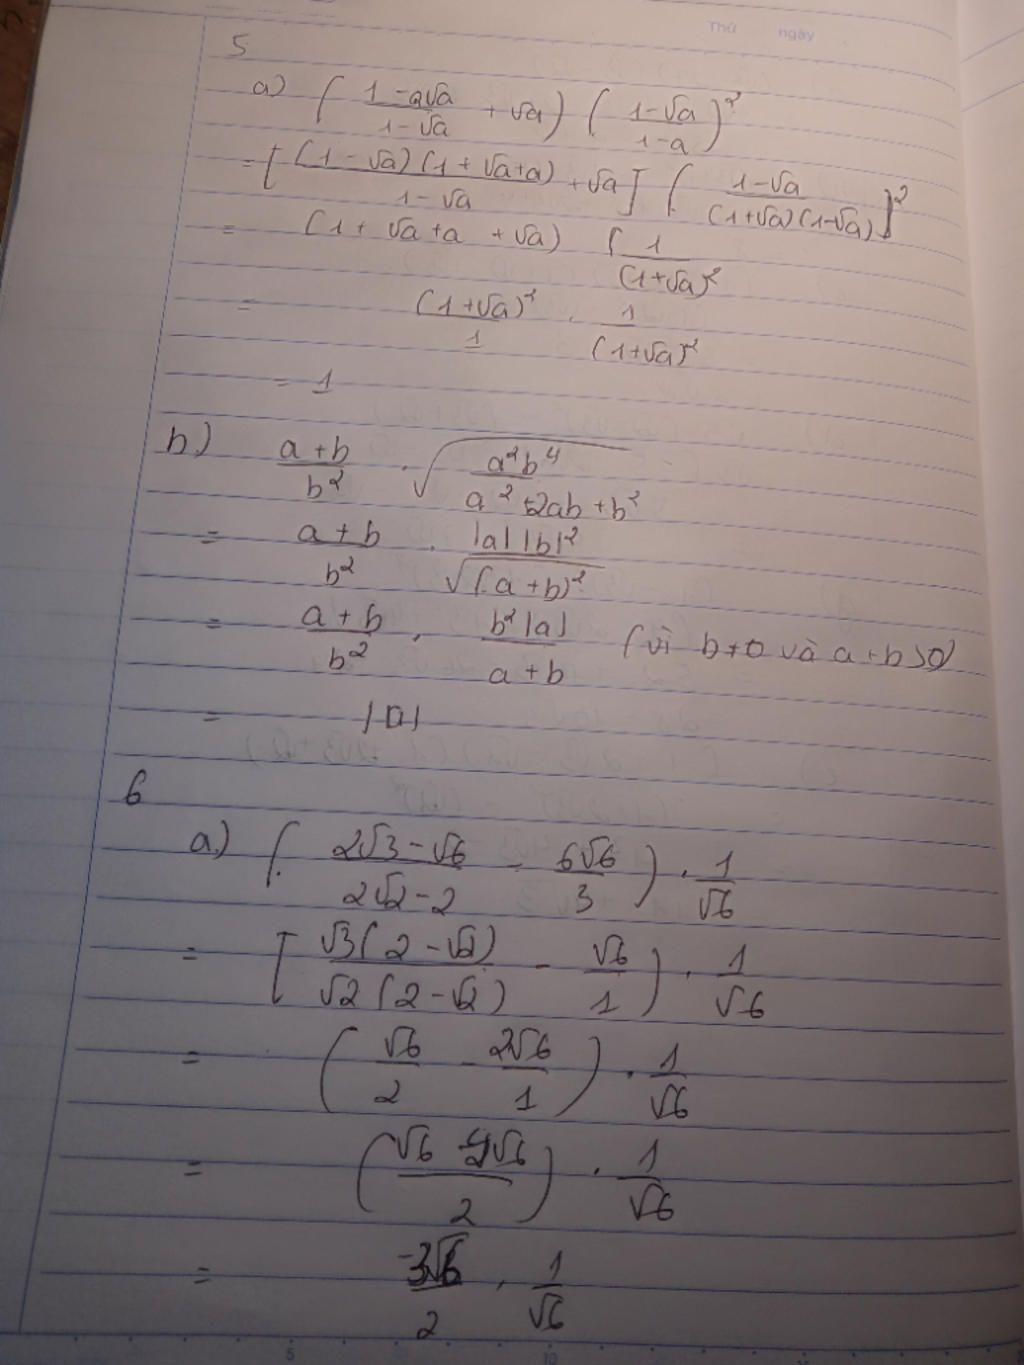 Thứ ngày
5
a) ( (1-a√a)/(1-√a) + √a ) ( (1-√a)/(1-a) )²
= [ (1-√a)(1+√a+a)/(1-√a) + √a ] [ (1-√a)/((1+√a)(1-√a)) ]²
= (1+√a+a+√a) ( 1/(1+√a)²
= (1+√a)²/1 . 1/(1+√a)²
= 1
b) (a+b)/b² . √(a²b⁴/(a²+2ab+b²))
= (a+b)/b² . |a||b|²/√((a+b)²
= (a+b)/b² . b²|a|/(a+b) (vì b≠0 và a+b>0)
= |a|
6
a) ( (2√3-√6)/(2√2-2) - 6√6/3 ) . 1/√6
= [ √3(2-√2)/(√2(2-√2)) - √6/1 ) . 1/√6
= ( √6/2 - 2√6/1 ) . 1/√6
= ( (√6-4√6)/2 ) . 1/√6
= -3√6/2 . 1/√6
5 10